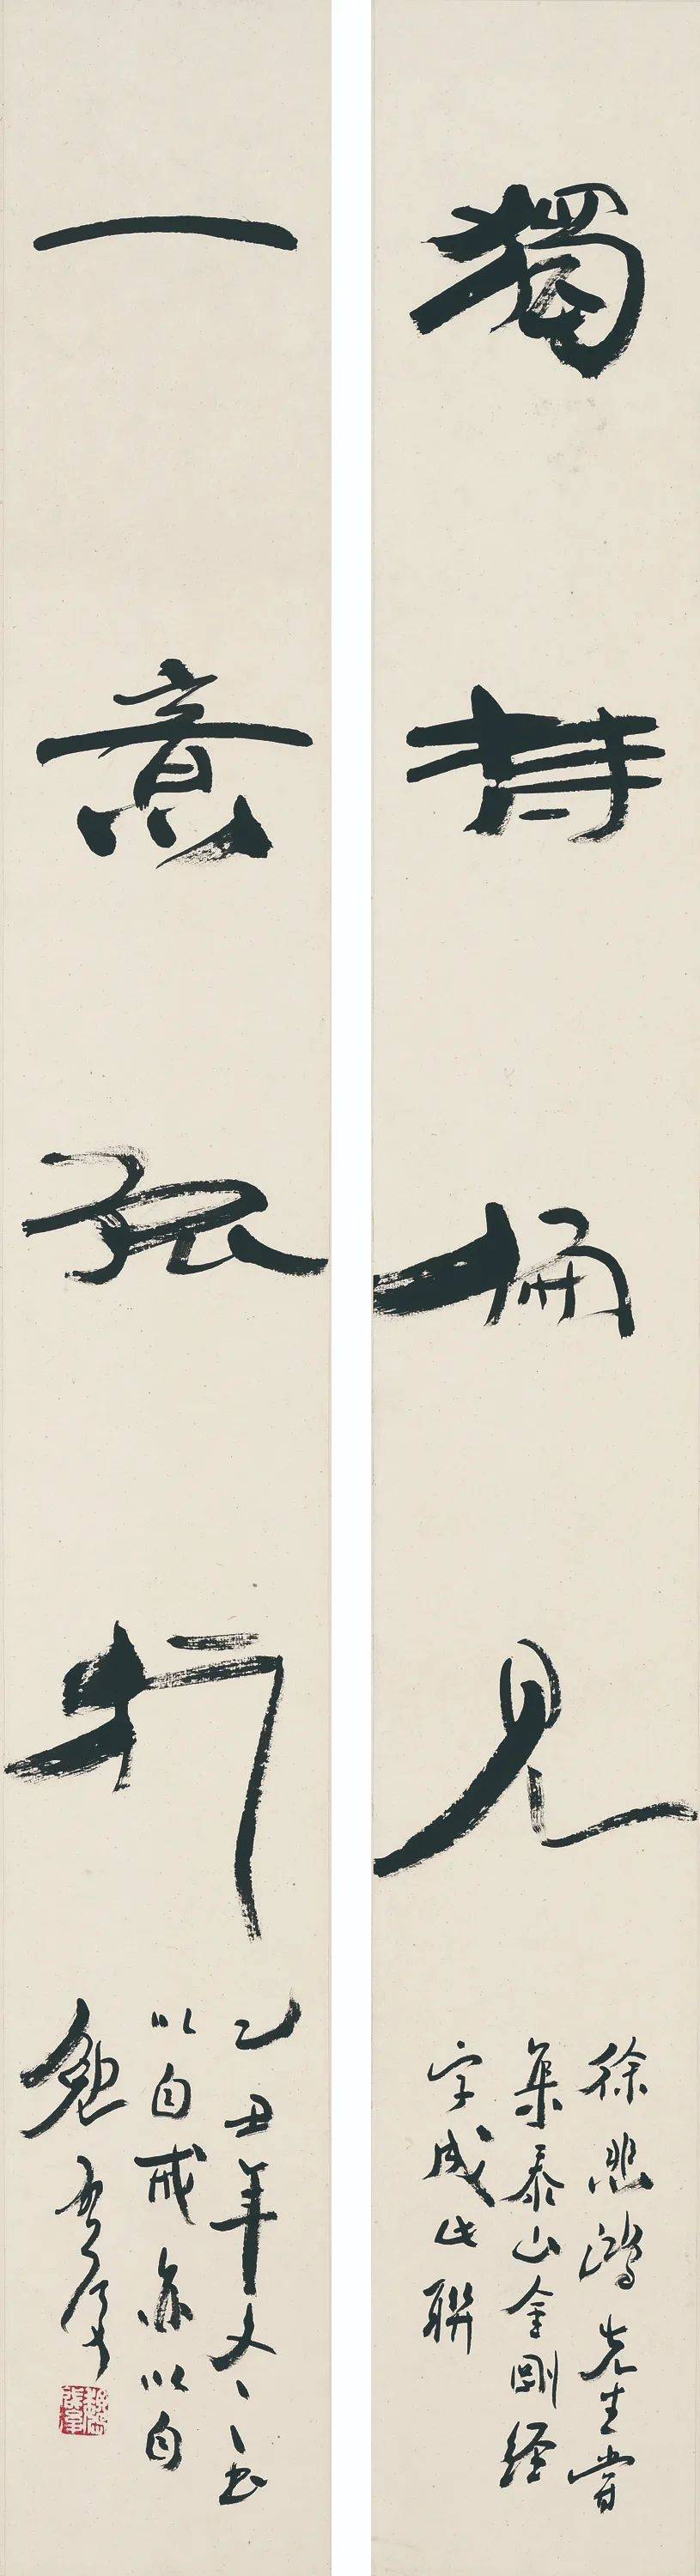 獨持偏見
徐悲鴻先生嘗
集泰山金剛经
字成此聯
一意孤行
乙丑年冬書
以自戒亦以自
勉